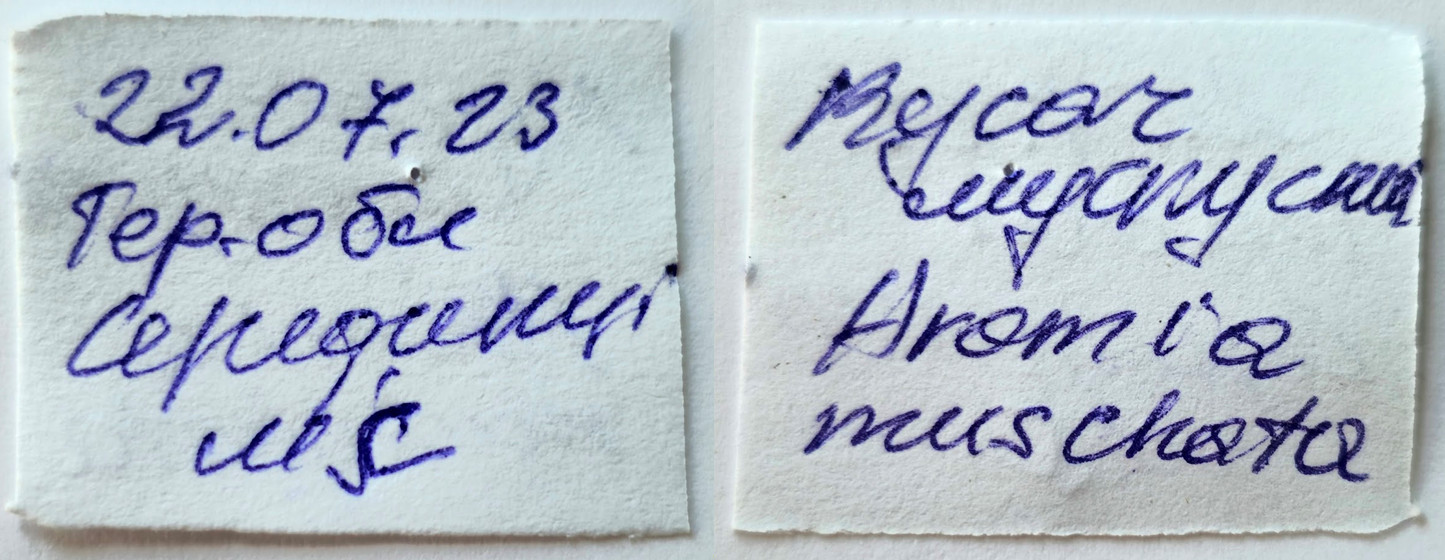 22.07.23
Тер. обл
Серединці
ліс
Вусач
мускусний
Aromia
muschata